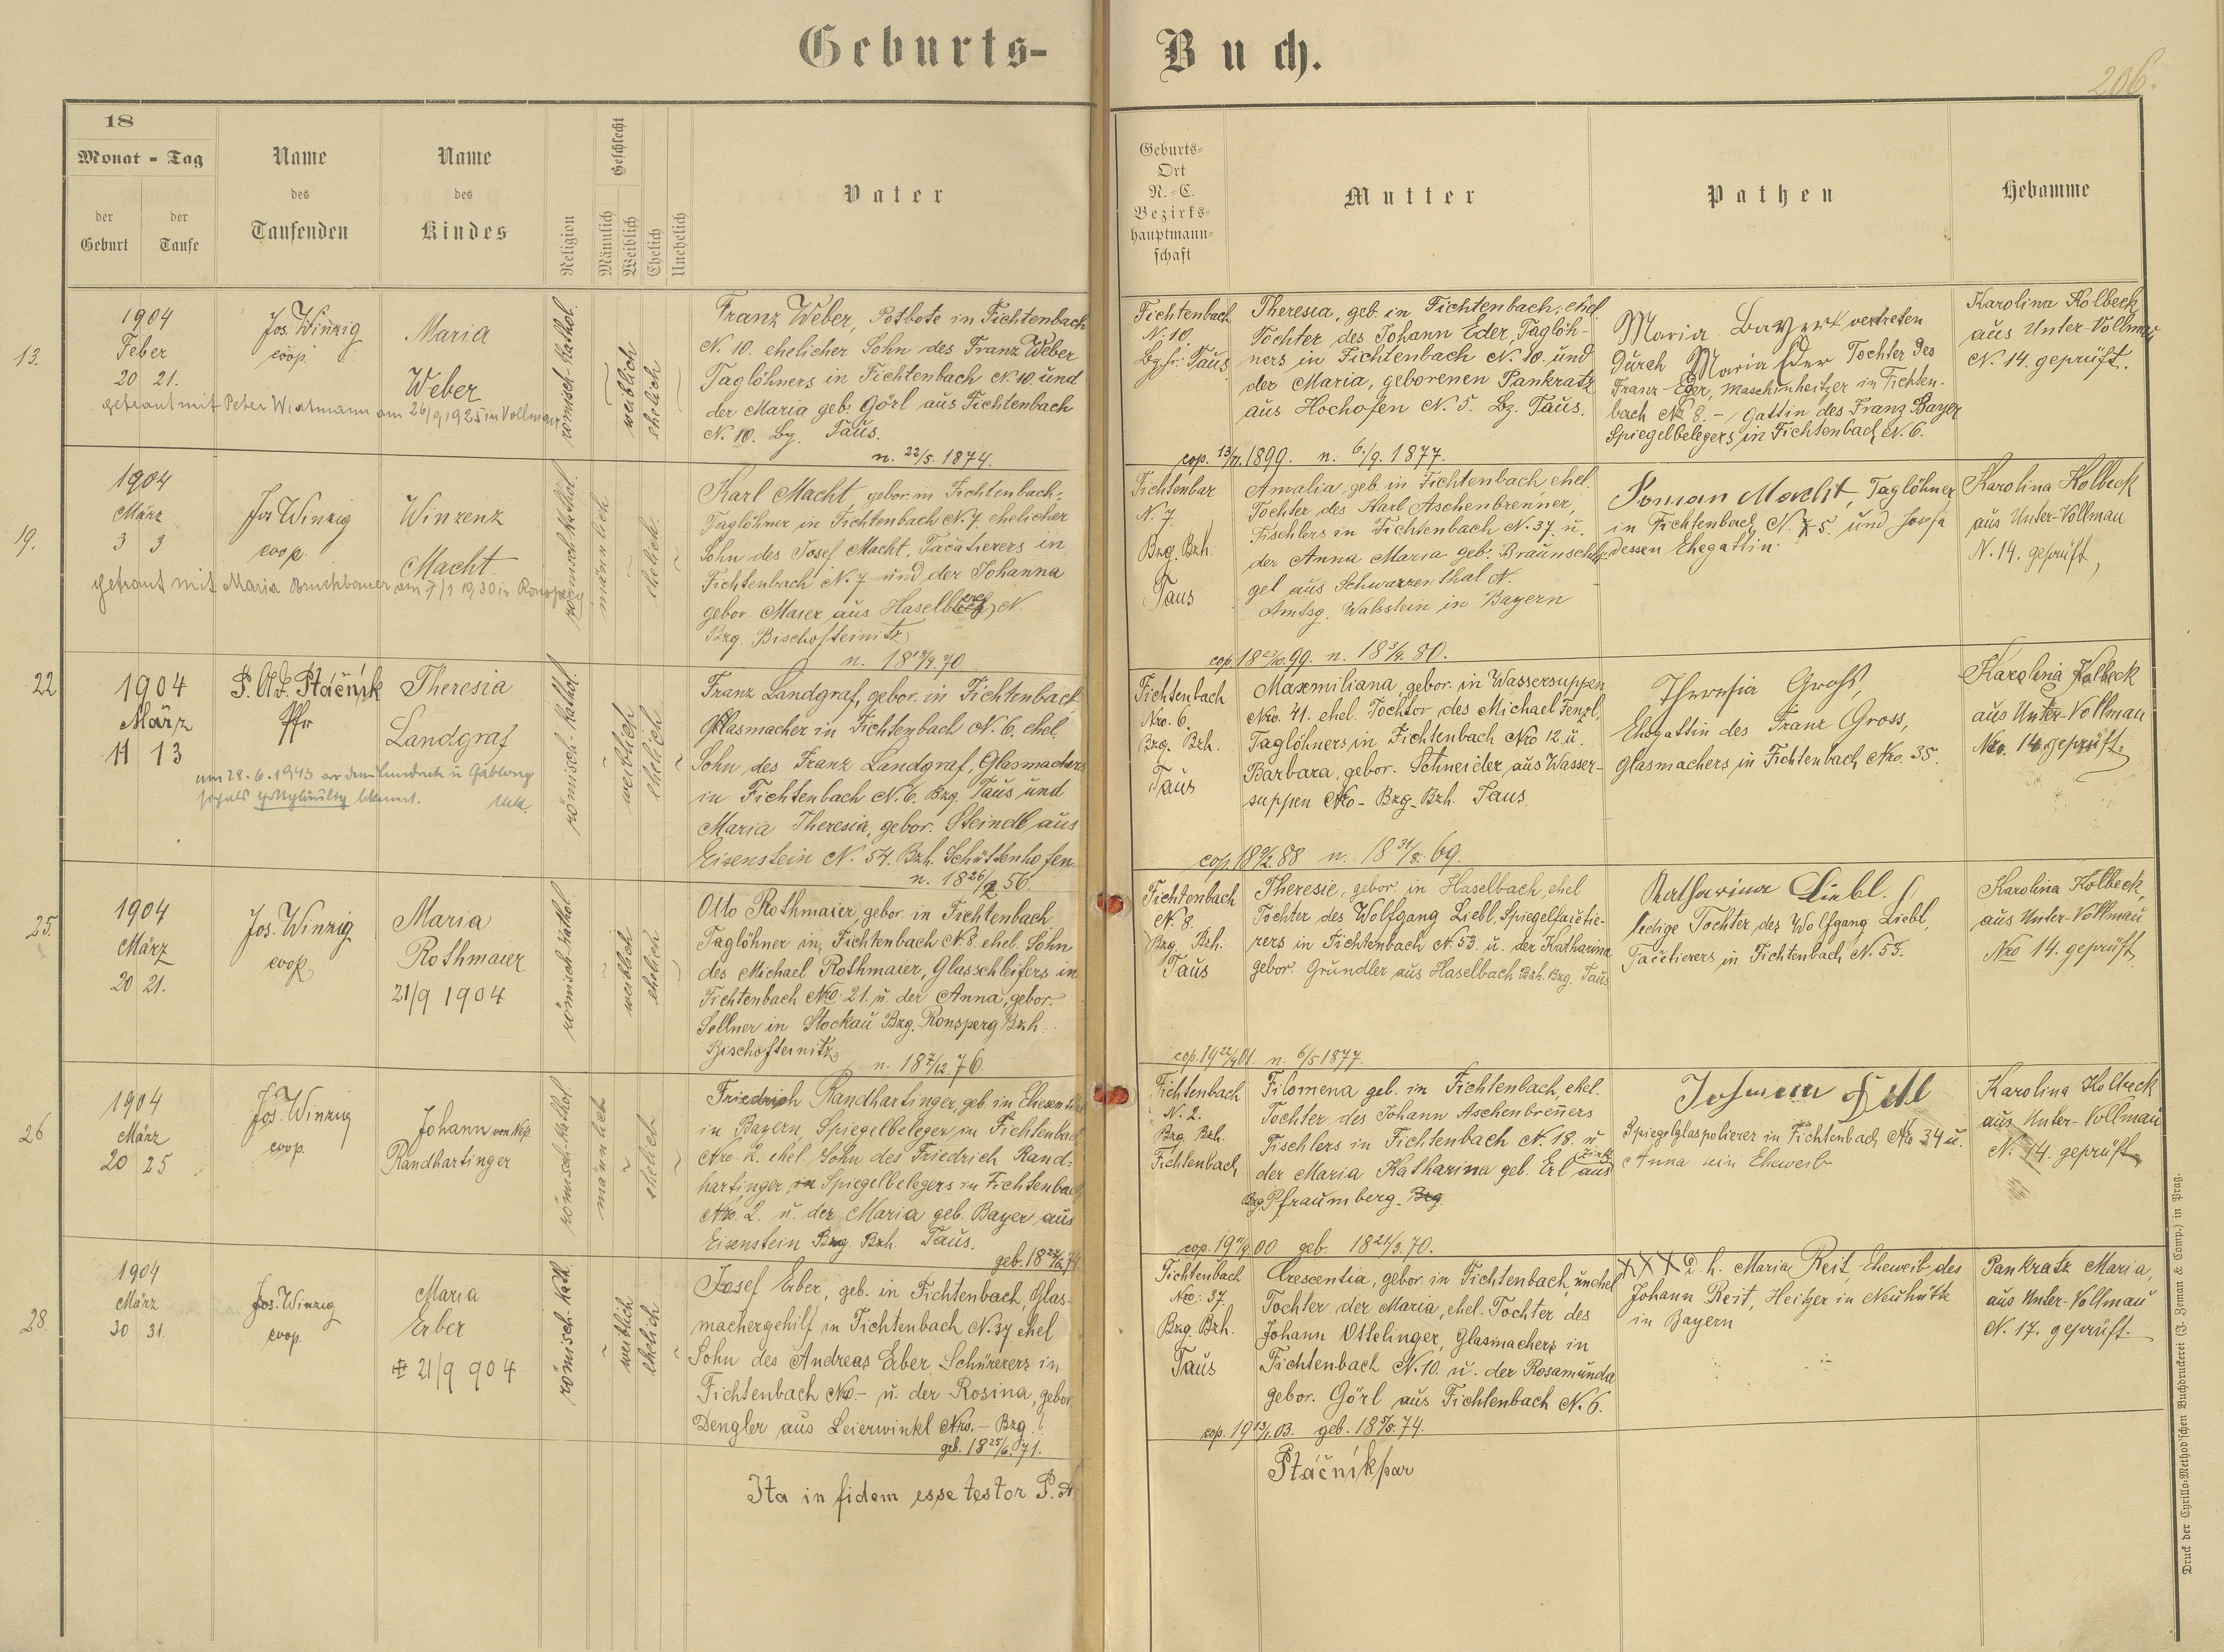 Geburts-Buch.
206.
18
Monat - Tag
der Geburt
der Taufe
Name des Taufenden
Name des Kindes
Religion
Geschlecht
Männlich
Weiblich
Ehelich
Unehelich
Vater
Geburts-
Ort
N.-C.
Bezirks-
hauptmann-
schaft
Mutter
Pathen
Hebamme
13.
1904
Feber
20 21.
Jos. Winzig
coop.
Maria
Weber
getraut mit Peter Wirtmann am 26/9 1925 in Vollmau
römisch-kathol.
weiblich
ehelich
Franz Weber, Potbote in Fichtenbach
N. 10. ehelicher Sohn des Franz Weber
Taglöhners in Fichtenbach N. 10. und
der Maria geb. Görl aus Fichtenbach
N. 10. Bz. Taus.
n. 22/5. 1874.
Fichtenbach
N. 10.
Taus
Theresia, geb. in Fichtenbach, ehel.
Tochter des Johann Eder, Taglöh-
ners in Fichtenbach N. 10. und
der Maria, geborenen Pankratz
aus Hochofen N. 5. Bz. Taus.
cop. 1899. n. 6./9. 1877.
Maria Bayer vertreten
durch Maria Eder Tochter des
Franz Eder, Maschinheitzer in Fichten-
bach N. 8. - Gattin des Franz Bayer
Spiegelbelegers in Fichtenbach N. 6.
Karolina Kolbeck
aus Unter-Vollmau
N. 14. geprüft.
19.
1904
März
3 3
Jos Winzig
coop.
Winzenz
Macht.
getraut mit Maria Bruckbauer am 7/1 1930 in Ronsperg
römisch-kathol.
männlich
ehelich.
Karl Macht, gebor. in Fichtenbach-
Taglöhner in Fichtenbach N. 7. ehelicher
Sohn des Josef Macht, Facatierers in
Fichtenbach N. 7 und der Johanna
gebor. Maier aus Haselbach N.
Bzg. Bischofteinitz
n. 70
Fichtenbar
N. 7
Bzg. Bzh.
Taus
Amalia, geb. in Fichtenbach ehel.
Tochter des Karl Aschenbrenner,
Tischlers in Fichtenbach N. 37. u.
der Anna Maria geb. Braunschlä-
gel aus Schwarzenthal N.
Amtsg. Walsstein in Bayern
cop 18 23/10. 99. n. 18 3/4. 80.
Roman Macht, Taglöhner
in Fichtenbach, N. 5 und Josefa
dessen Ehegattin
Karolina Kolbeck
aus Unter-Vollmau
N. 14. geprüft,
22
1904
März
11 13
P. Ad. Ptáčník
Pfr
Theresia
Landgraf
am 28.6.1943 in Gablonz
römisch-kathol.
weiblich
ehelich
Franz Landgraf, gebor. in Fichtenbach
Glasmacher in Fichtenbach N. 6. ehel.
Sohn des Franz Landgraf, Glasmachers
in Fichtenbach N. 6. Bzg. Taus und
Maria Theresia, gebor. Steindl aus
Eisenstein N. 54. Bzh. Schüttenhofen
n. 18 26/2 56.
Fichtenbach
Nro. 6.
Bzg. Bzh.
Taus
Maxmiliana, gebor. in Wassersuppen
Nro. 41. ehel. Tochter des Michael Fenzl,
Taglöhners in Fichtenbach Nro 12 u.
Barbara, gebor. Schneider aus Wasser-
suppen Nro - Bzg - Bzh. Taus.
cop. 88 n. 18 31/8. 69.
Theresia Gross,
Ehegattin des Franz Gross,
Glasmachers in Fichtenbach Nro. 35.
Karolina Kolbeck
aus Unter-Vollmau
Nro. 14 geprüft.
25.
1904
März
20 21.
Jos. Winzig
coop.
Maria
Rothmaier
21/9 1904
römisch-kathol.
weiblich
ehelich
Otto Rothmaier, gebor. in Fichtenbach
Taglöhner in Fichtenbach N. 8 ehel. Sohn
des Michael Rothmaier, Glasschleifers in
Fichtenbach Nro. 21. u. der Anna, gebor.
Sellner in Stockau Bzg. Ronsperg Bzh.
Bischofteinitz
n. 18 7/12. 76.
Fichtenbach
N. 8.
Bzg. Bzh.
Taus
Theresie, gebor. in Haselbach, ehel
Tochter des Wolfgang Liebl, Spiegelfacetie-
rers in Fichtenbach N. 53. u. der Katharina
gebor. Gründler aus Haselbach Bzh. Bzg. Taus
cop. 19 01. n. 6/5 1877.
Katharina Liebl.
ledige Tochter des Wolfgang Liebl,
Facetierers in Fichtenbach N. 53.
Karolina Kolbeck,
aus Unter-Vollmau
Nro 14. geprüft
26
1904
März
20 25
Jos. Winzig
coop.
Johann von Nep.
Randhartinger
römisch-kathol.
männlich
ehelich
Friedrich Randhartinger, geb. in
in Bayern, Spiegelbeleger in Fichtenbach
Nro. 2. ehel. Sohn des Friedrich Rand-
hartinger, Spiegelbelegers in Fichtenbach
Nro. 2. u. der Maria geb. Bayer, aus
Eisenstein Bzg. Bzh. Taus.
Fichtenbach
N. 2.
Bzg. Bzh.
Fichtenbach
Filomena geb. in Fichtenbach, ehel.
Tochter des Johann Aschenbreners
Tischlers in Fichtenbach N. 18. u.
der Maria Katharina geb. Erl aus
Bzg. Pfraumberg. Bzg
cop. 00 geb. 18 21/3. 70.
Johann
Spiegelglaspolierer in Fichtenbach Nro 34 u.
Anna sein Eheweib
Karolina Kolbeck
aus Unter-Vollmau
N. 14. geprüft
28.
1904
März
30 31.
Jos. Winzig
coop.
Maria
Erber
21/9 904
römisch.kath.
weiblich
ehelich
geb. 18
Josef Erber, geb. in Fichtenbach, Glas-
machergehilf in Fichtenbach N. 37 ehel
Sohn des Andreas Erber, Schürerers in
Fichtenbach Nro - u. der Rosina, gebor
Dengler aus Leierwinkl Nro. - Bzg.
geb. 18 25/6. 71.
Fichtenbach
Nro: 37.
Bzg. Bzh.
Taus
Crescentia, gebor. in Fichtenbach, unehel
Tochter der Maria, ehel. Tochter des
Johann Ottelinger, Glasmachers in
Fichtenbach N. 10. u. der Rosamunda
gebor. Görl aus Fichtenbach N. 6.
cop. 19 13/1. 03. geb. 18 5/5. 74.
XXX d. h. Maria Reit, Eheweib des
Johann Reit, Heitzer in Neuhütte
in Bayern
Pankratz Maria,
aus Unter-Vollmau
N. 17. geprüft.
Ita in fidem esse testor P. A. Ptáčník par
Druck der Cyrillo-Method'schen Buchdruckerei (J. Zeman & Comp.) in Prag.